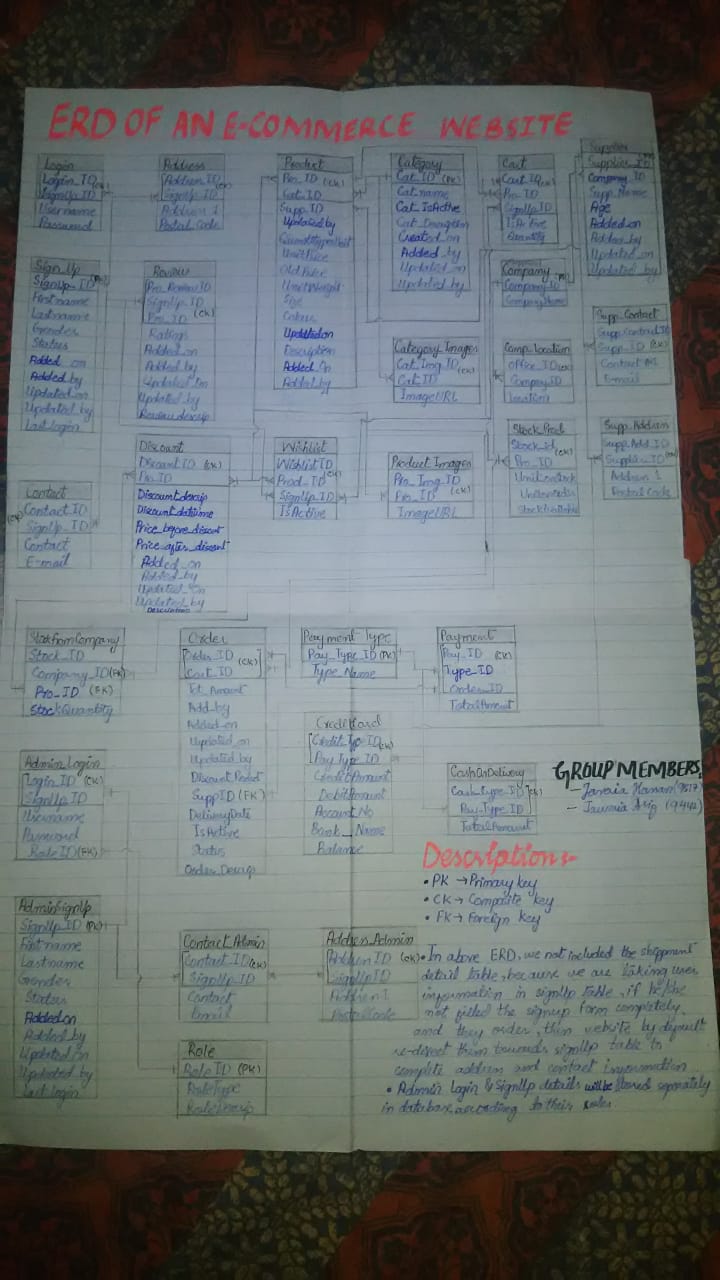 ERD OF AN E-COMMERCE WEBSITE
Login
Login_ID (CK)
SignUp_ID
Username
Password
Address
Address_ID (CK)
SignUp_ID
Address 1
Postal Code
Product
Pro_ID (CK)
Cat_ID
Supp_ID
Updated by
UnitPrice
Old Price
UnitWeight
Size
Colour
Updated on
Description
Added_On
Added_by
Category
Cat_ID (PK)
Cat_name
Cat_IsActive
Created_on
Added_by
Updated_on
Updated_by
Cart
Cart_ID (CK)
Pro_ID
SignUp_ID
IsActive
Quantity
Supplier
Supplier_ID
Company_ID
Supp_Name
Age
Added_on
Added_by
Updated_on
Updated_by
Sign Up
SignUp_ID (PK)
Firstname
Lastname
Gender
Status
Added_on
Added_by
Updated_on
Updated_by
Last login
Review
Pro_Review_ID
SignUp_ID
Pro_ID (CK)
Ratings
Added_on
Added_by
Updated_On
Updated_by
Review_descrip
Company
Company_ID
Company Name
Category_Images
Cat_Img_ID (CK)
Cat_ID
ImageURL
Comp_Location
Office_ID (CK)
Company_ID
Location
Supp_Contact
Supp_Contact_ID
Supp_ID (CK)
Contact
E-mail
Discount
Discount_ID (CK)
Pro_ID
Discount descrip
Discount_datetime
Price_before_discount
Price_after_discount
Added_on
Added_by
Updated_On
Updated_by
Wishlist
Wishlist ID
Prod_ID (CK)
SignUp_ID
IsActive
Product Images
Pro_Img_ID
Pro_ID (CK)
ImageURL
Stock Prod
Stock_id (CK)
Pro_ID
Supp_Address
Supp_Add_ID
Supplier_ID (CK)
Address 1
Postal Code
Contact
(CK) Contact_ID
SignUp_ID
Contact
E-mail
StockfromCompany
Stock_ID
Company_ID (FK)
Pro_ID (FK)
StockQuantity
Order
Order_ID (CK)
Cart_ID
Tot_Amount
Add_by
Added_on
Updated_on
Updated_by
SuppID (FK)
DeliveryDate
IsActive
Status
Order_Descrip
Payment Type
Pay_Type_ID (PK)
Type_Name
Payment
Pay_ID (CK)
Type_ID
Order_ID
TotalAmount
CreditCard
Credit_Type_ID (CK)
Pay Type_ID
CreditAmount
DebitAmount
Account_No
Bank_Name
Balance
CashOnDelivery
Cash_Type_ID (CK)
Pay_Type_ID
Total Amount
GROUP MEMBERS
Admin Login
Login_ID (CK)
SignUp_ID
Username
Password
Role ID (FK)
AdminSignUp
SignUp_ID (PK)
First name
Lastname
Gender
Status
Added_on
Added_by
Updated_on
Updated_by
Last login
Contact_Admin
Contact_ID (CK)
SignUp_ID
Contact
Email
Address_Admin
Address ID (CK)
SignUp ID
Address 1
Postal Code
Role
Role ID (PK)
RoleType
RoleDescrip
Description:-
• PK → Primary key
• CK → Composite key
• FK → Foreign key
• In above ERD, we not included the shippment
detail table, because we are taking user
information in signUp table, if he/she
not filled the signup form completely
and they order, then website by default
re-direct them towards signUp table to
complete address and contact information
• Admin Login & SignUp details will be stored seperately
in database according to their roles